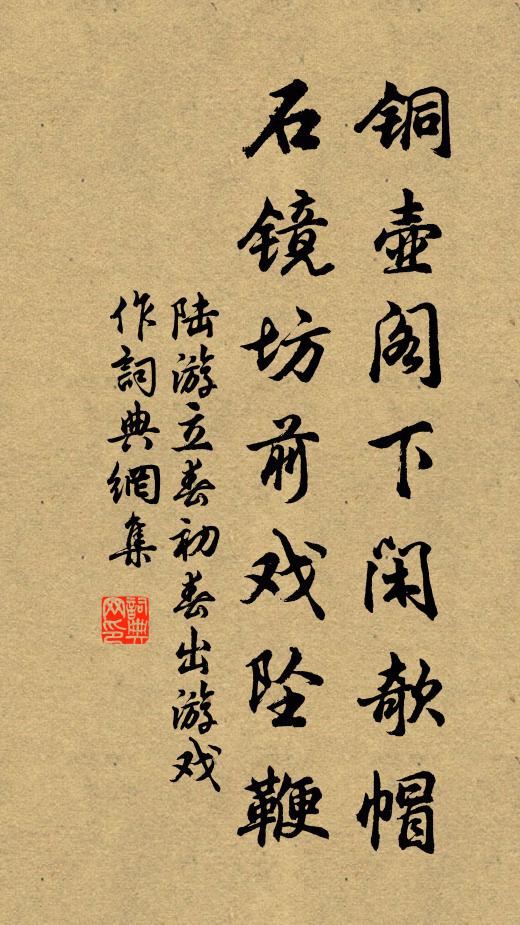 铜壶阁下闲欹帽
石镜坊前戏坠鞭
陆游立春初春出游戏
作詞典網集
詞典网印